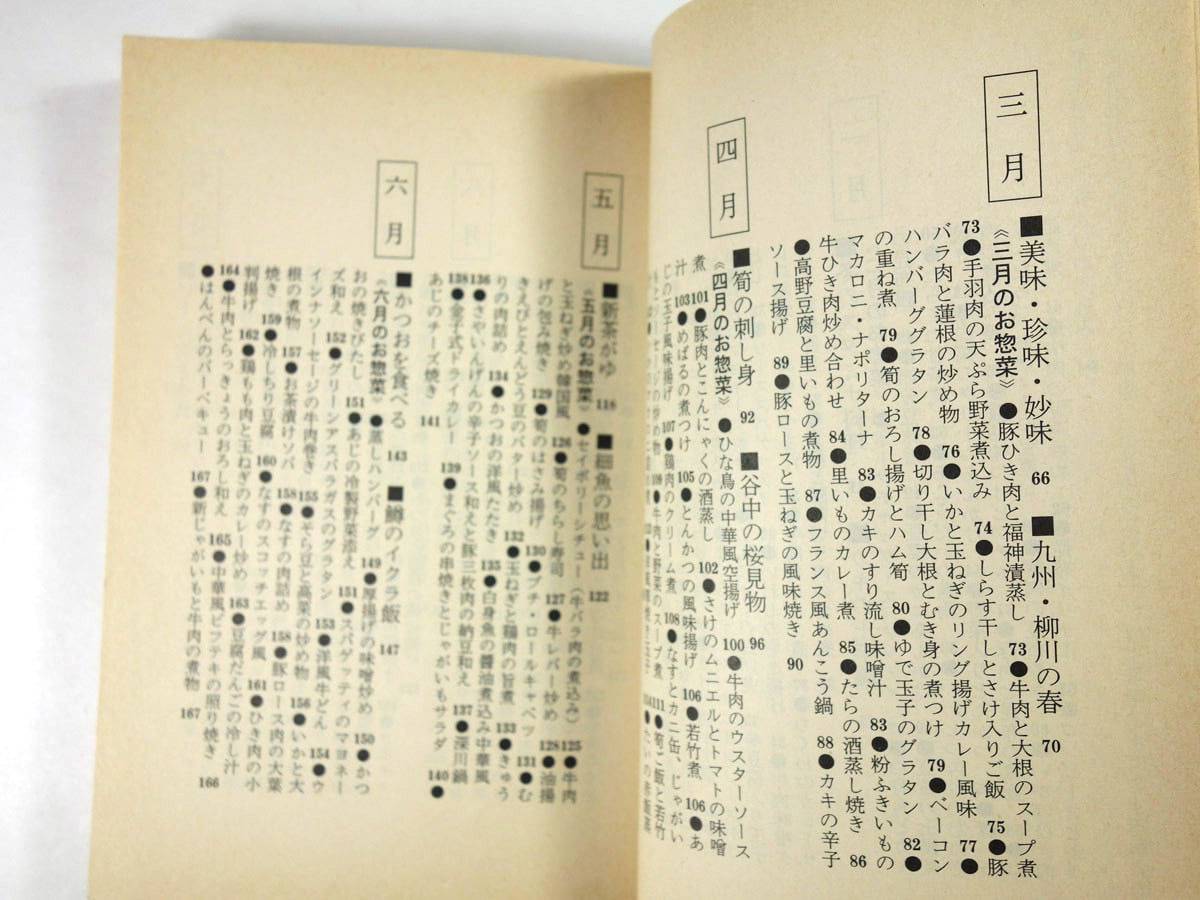 三月
■美味・珍味・妙味 66 ■九州・柳川の春 70
《三月のお惣菜》●豚ひき肉と福神漬蒸し 73●牛肉と大根のスープ煮
73●手羽肉の天ぷら野菜煮込み 74●しらす干しとさけ入りご飯 75●豚
バラ肉と蓮根の炒め物 76●いかと玉ねぎのリング揚げカレー風味 77●
ハンバーググラタン 78●切り干し大根とむき身の煮つけ 79●ベーコン
の重ね煮 79●筍のおろし揚げとハム筍 80●ゆで玉子のグラタン 82●
マカロニ・ナポリターナ 83●カキのすり流し味噌汁 83●粉ふきいもの
牛ひき肉炒め合わせ 84●里いものカレー煮 85●たらの酒蒸し焼き 86
●高野豆腐と里いもの煮物 87●フランス風あんこう鍋 88●カキの辛子
ソース揚げ 89●豚ロースと玉ねぎの風味焼き 90
四月
■筍の刺し身 92 ■谷中の桜見物 96
《四月のお惣菜》●ひな鳥の中華風空揚げ 100●牛肉のウスターソース
煮 101●豚肉とこんにゃくの酒蒸し 102●さけのムニエルとトマトの味噌
汁 103●めばるの煮つけ 105●とんかつの風味揚げ 106●若竹煮 106●あ
じの玉子風味揚げ 107●鶏肉のクリーム煮 108●なすとカニ缶、じゃがい
五月
■新茶がゆ 118 ■細魚の思い出 122
《五月のお惣菜》●セイボリーシチュー（牛バラ肉の煮込み） 125●牛肉
と玉ねぎ炒め韓国風 126●筍のちらし寿司 127●牛レバー炒め 128●油揚
げの包み焼き 129●筍のはさみ揚げ 130●プチ・ロールキャベツ 131●む
きえびとえんどう豆のバター炒め 132●玉ねぎと鶏肉の旨煮 133●きゅう
りの肉詰め 134●かつおの洋風たたき 135●白身魚の醤油煮込み中華風
136●さやいんげんの辛子ソース和えと豚三枚肉の納豆和え 137●深川鍋
138●金子式ドライカレー 139●まぐろの串焼きとじゃがいもサラダ 140●
あじのチーズ焼き 141
六月
■かつおを食べる 143 ■鱒のイクラ飯 147
《六月のお惣菜》●蒸しハンバーグ 149●厚揚げの味噌炒め 150●かつ
おの焼きびたし 151●あじの冷製野菜添え 151●スパゲッティのマヨネー
ズ和え 152●グリーンアスパラガスのグラタン 153●洋風牛どん 154●ウ
インナソーセージの牛肉巻き 155●そら豆と高菜の炒め物 156●いかと大
根の煮物 157●お茶漬けソバ 158●なすの肉詰め 158●豚ロース肉の大葉
焼き 159●冷しちり豆腐 160●なすのスコッチエッグ風 161●ひき肉の小
判揚げ 162●鶏もも肉と玉ねぎのカレー炒め 163●豆腐だんごの冷し汁
164●牛肉とらっきょうのおろし和え 165●中華風ビフテキの照り焼き 166
●はんぺんのバーベキュー 167●新じゃがいもと牛肉の煮物 167